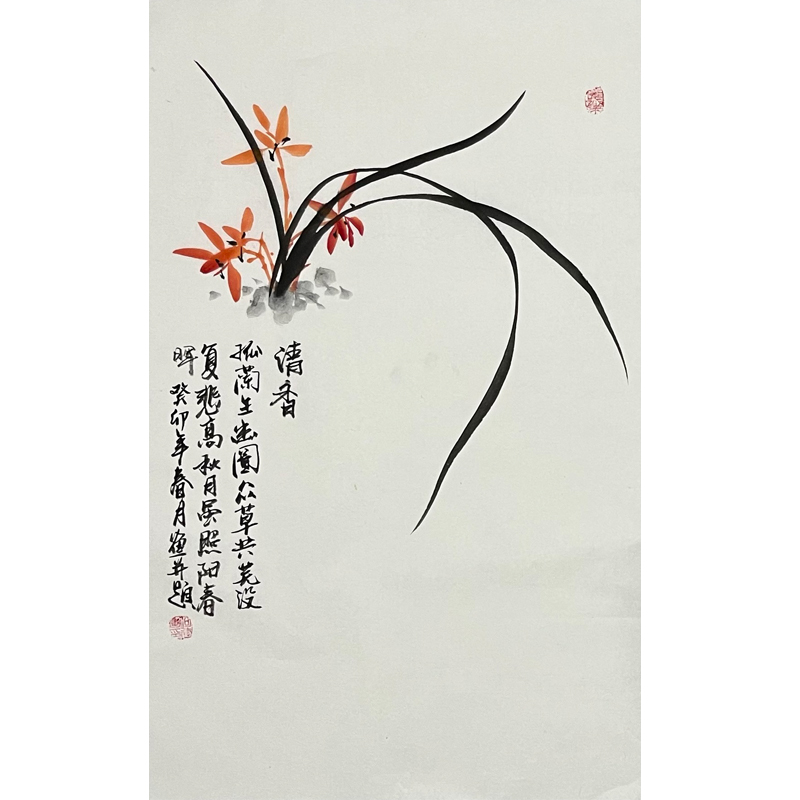 清香
孤蘭生幽園众草共芜没
复悲高秋月虽照阳春
晖 癸卯年春月画并题